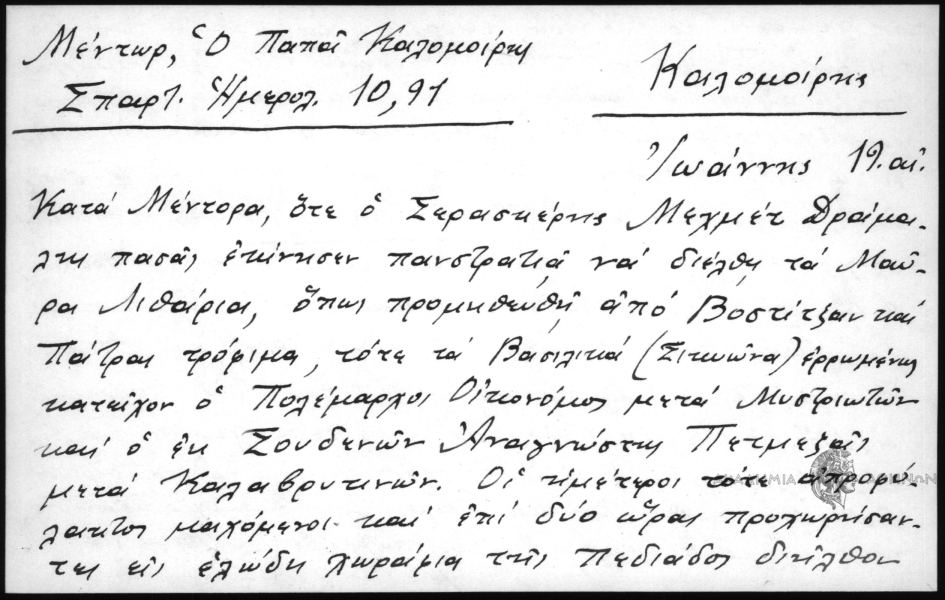 Μέντωρ, Ὁ Παπᾶ Καλομοίρης
Σπαρτ. Ἡμερολ. 10, 91
Καλομοίρης
Ἰωάννης 19. αἰ.
Κατά Μέντορα, ὅτε ὁ Σερασκέρης Μεχμέτ Δράμα-
λης πασᾶς ἐκίνησεν πανστρατιᾷ νά διέλθῃ τά Μαῦ-
ρα Λιθάρια, ὅπως προμηθευθῇ ἀπό Βοστίτζαν καί
Πάτρας τρόφιμα, τότε τά Βασιλικά (Σικυῶνα) ἐρρωμένως
κατεῖχον ὁ Πολέμαρχος Οἰκονόμος μετά Μυστριωτῶν
καί ὁ ἐκ Σουδενῶν Ἀναγνώστης Πετμεζᾶς
μετά Καλαβρυτινῶν. Οἱ ἡμέτεροι τότε ἀπροφύ-
λακτως μαχόμενοι καί ἐπί δύο ὥρας προχωρήσαν-
τες εἰς ἑλώδη χωράφια τῆς πεδιάδος διῆλθον
ΑΚΑΔΗΜΙΑ ΑΘΗΝΩΝ